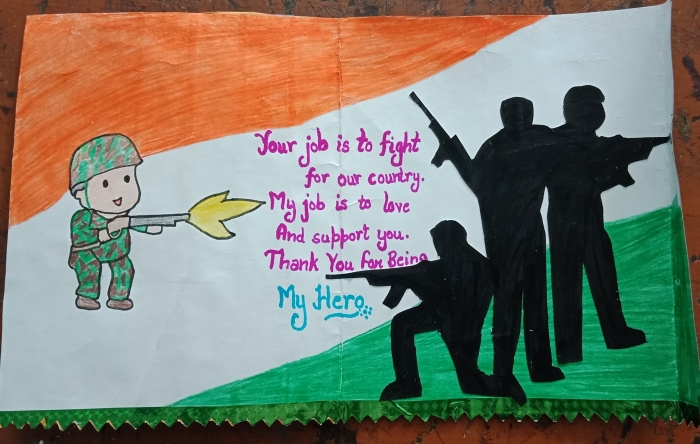 Your job is to fight
for our country.
My job is to love
And support you.
Thank You For Being
My Hero